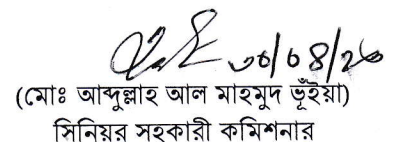 ৩০/০৪/২৬
(মোঃ আব্দুল্লাহ আল মাহমুদ ভূঁইয়া)
সিনিয়র সহকারী কমিশনার